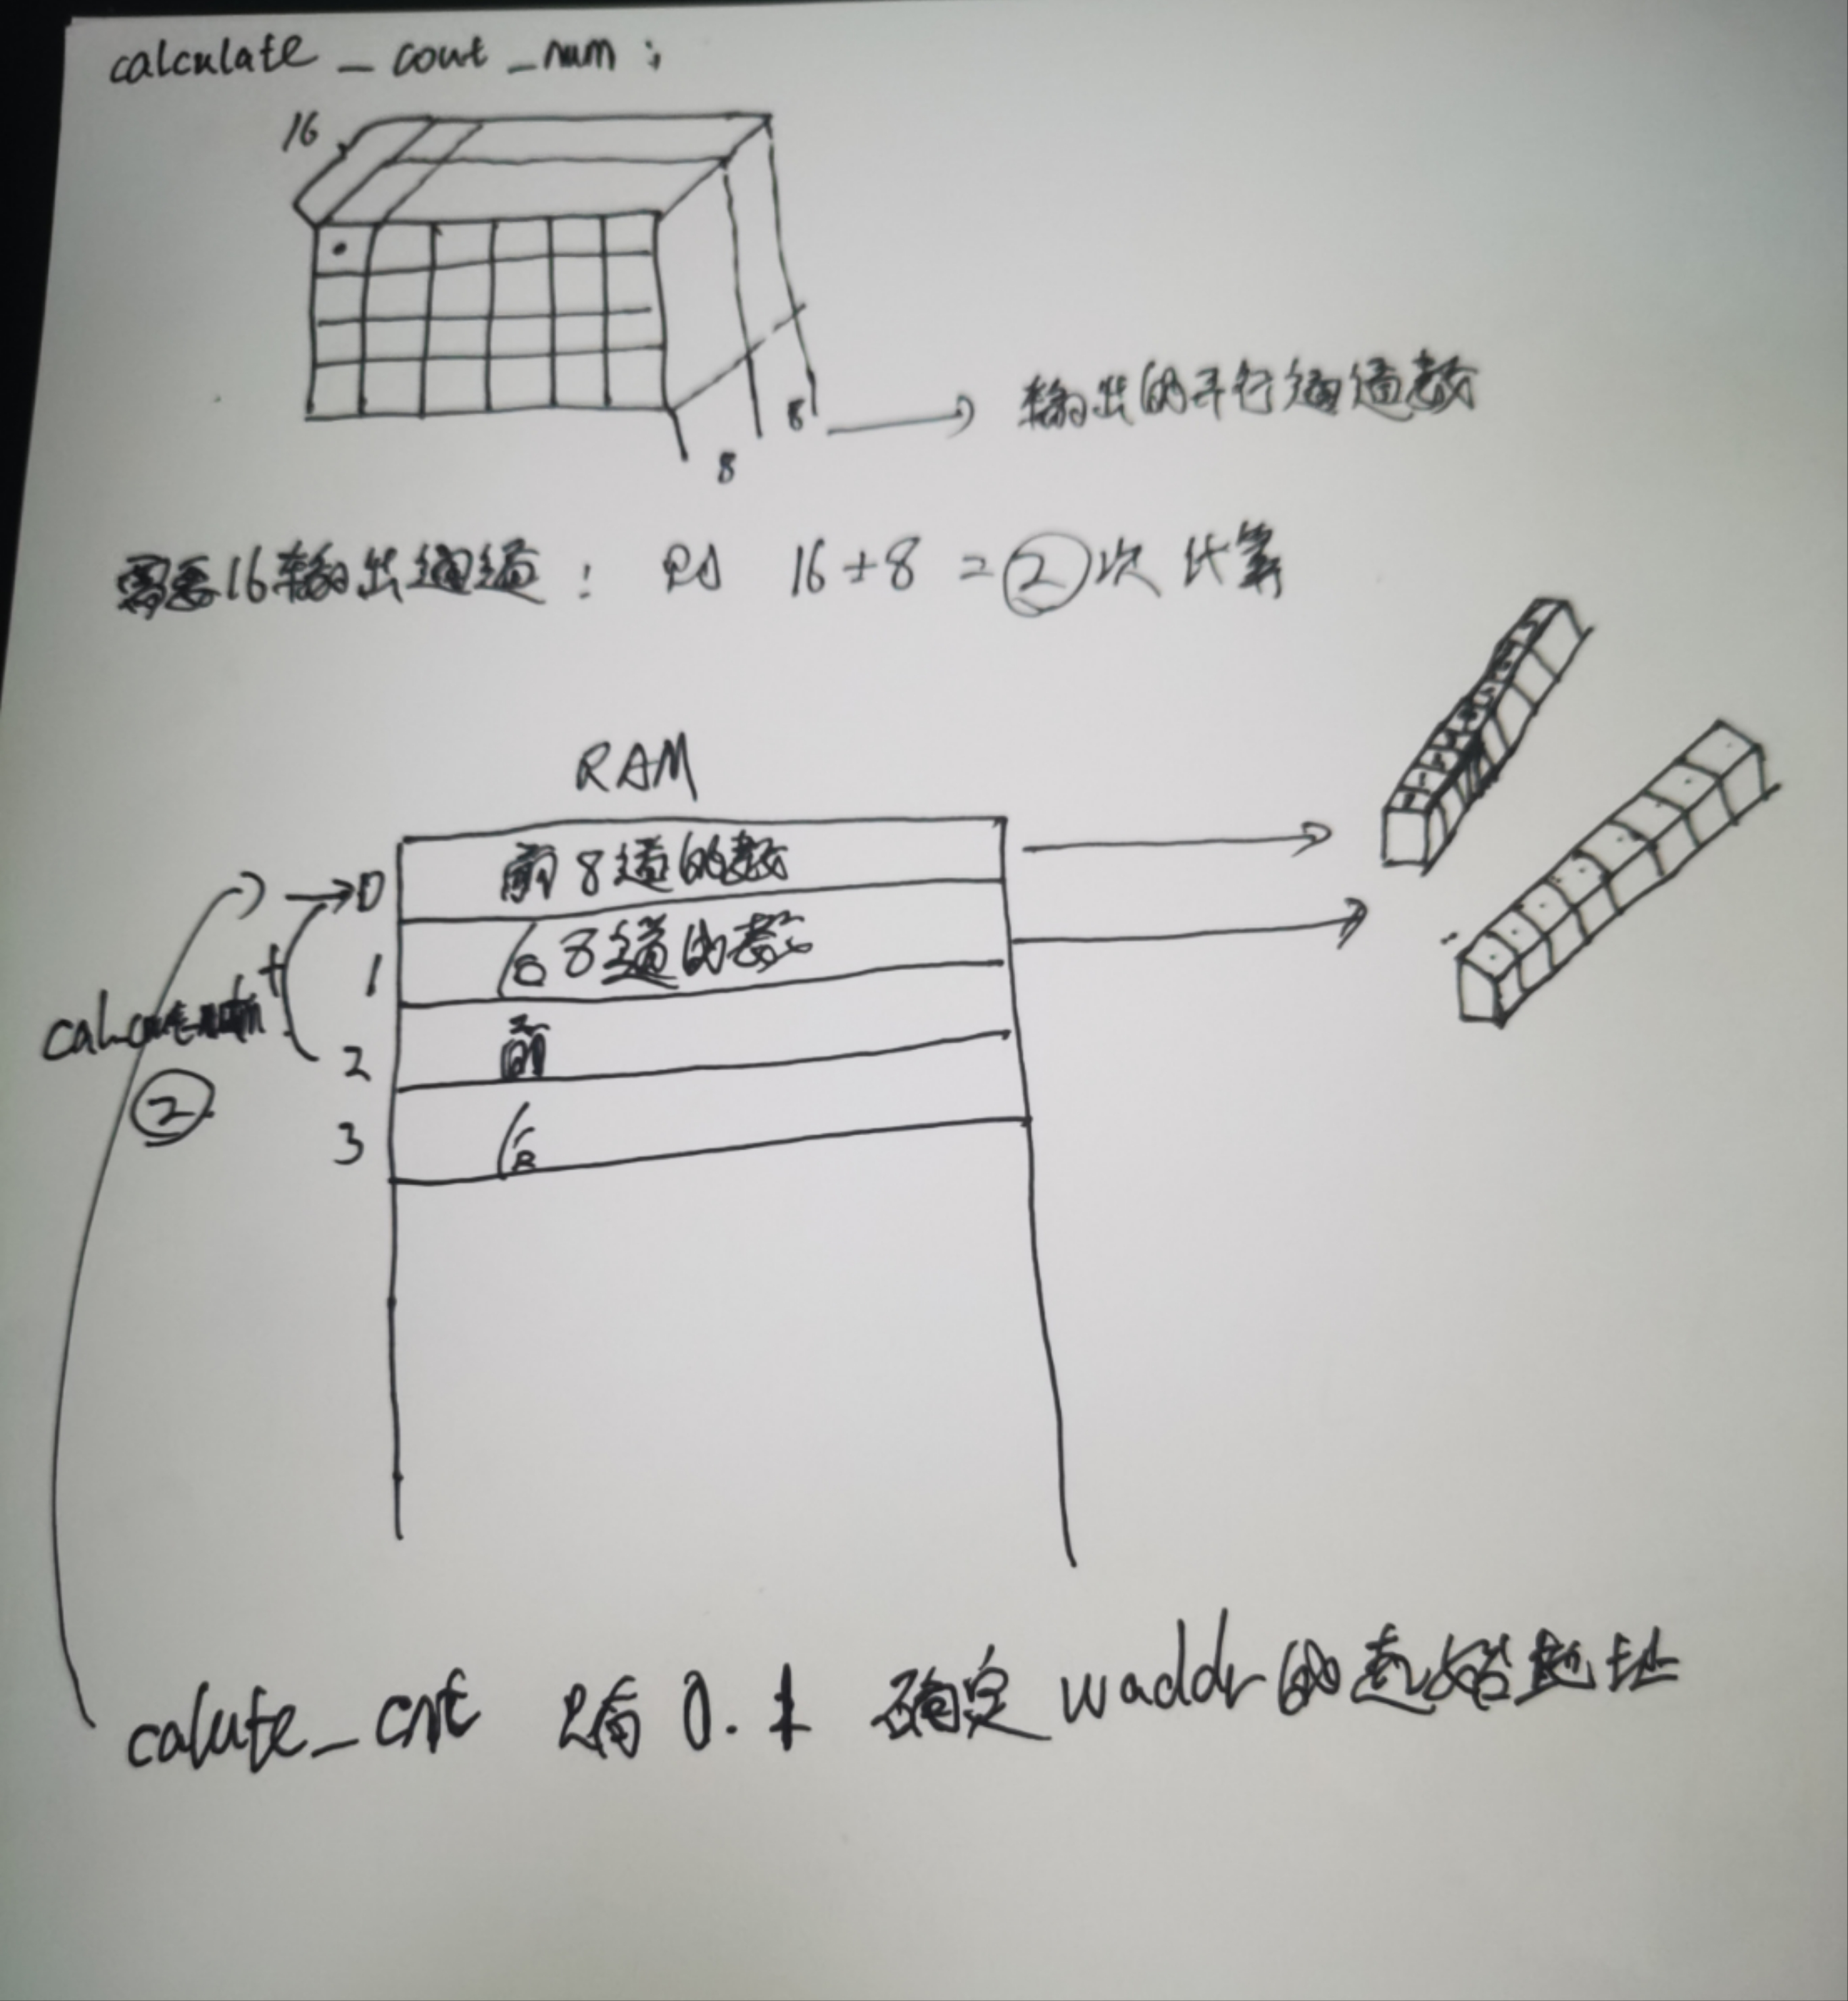 calculate_cout_num:
16
8
8
输出的并行通道数
需要16输出通道: 则 16÷8=②次计算
RAM
0 前8道的数
1 后8道的数
+
2 前
②
3 后
calute_cnt only 0.1 确定waddr的起始地址